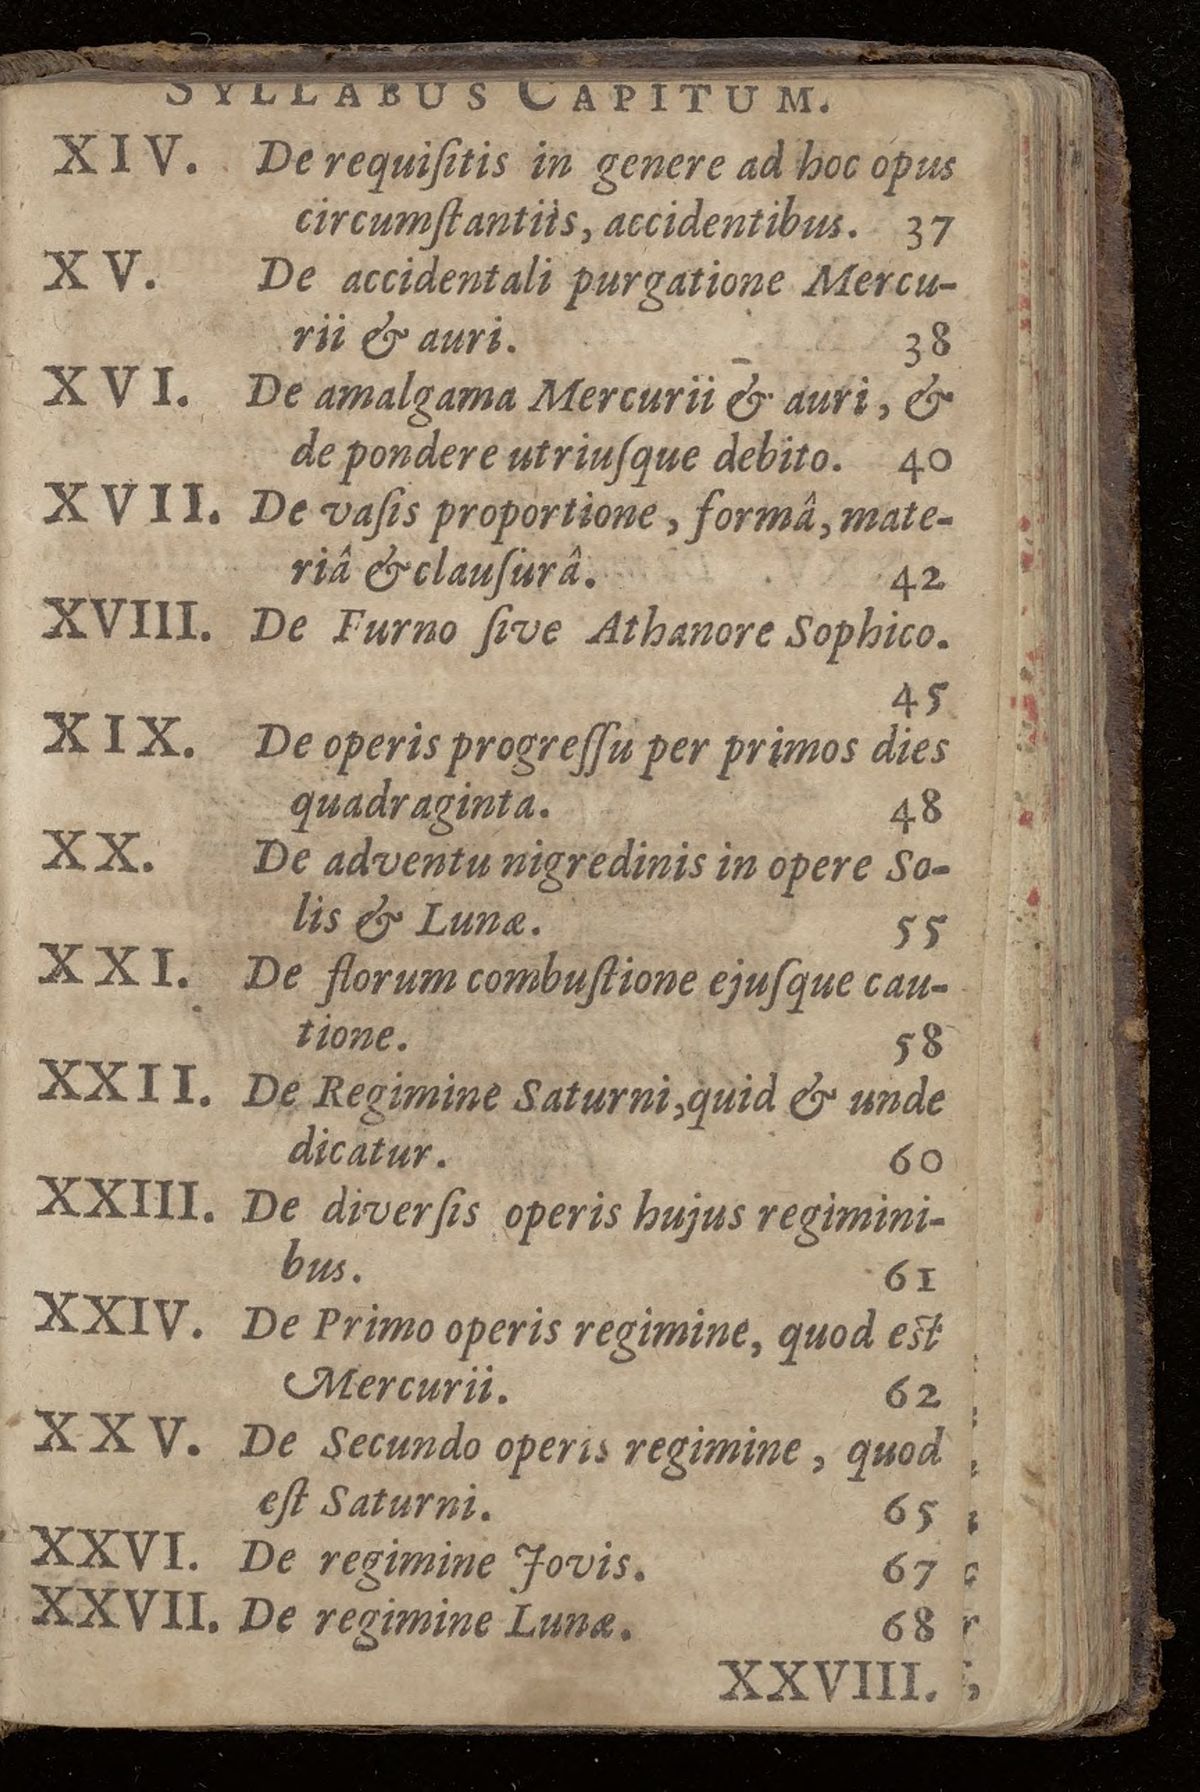 SYLLABUS CAPITUM.
XIV. De requiſitis in genere ad hoc opus
circumſtantiis, accidentibus. 37
XV. De accidentali purgatione Mercu-
rii & auri. 38
XVI. De amalgama Mercurii & auri, &
de pondere utriuſque debito. 40
XVII. De vaſis proportione, formâ, mate-
riâ & clauſurâ. 42
XVIII. De Furno ſive Athanore Sophico.
45
XIX. De operis progreſſu per primos dies
quadraginta. 48
XX. De adventu nigredinis in opere So-
lis & Lunæ. 55
XXI. De florum combuſtione ejuſque cau-
tione. 58
XXII. De Regimine Saturni, quid & unde
dicatur. 60
XXIII. De diverſis operis hujus regimini-
bus. 61
XXIV. De Primo operis regimine, quod eſt
Mercurii. 62
XXV. De Secundo operis regimine, quod
eſt Saturni. 65
XXVI. De regimine Jovis. 67
XXVII. De regimine Lunæ. 68
XXVIII.